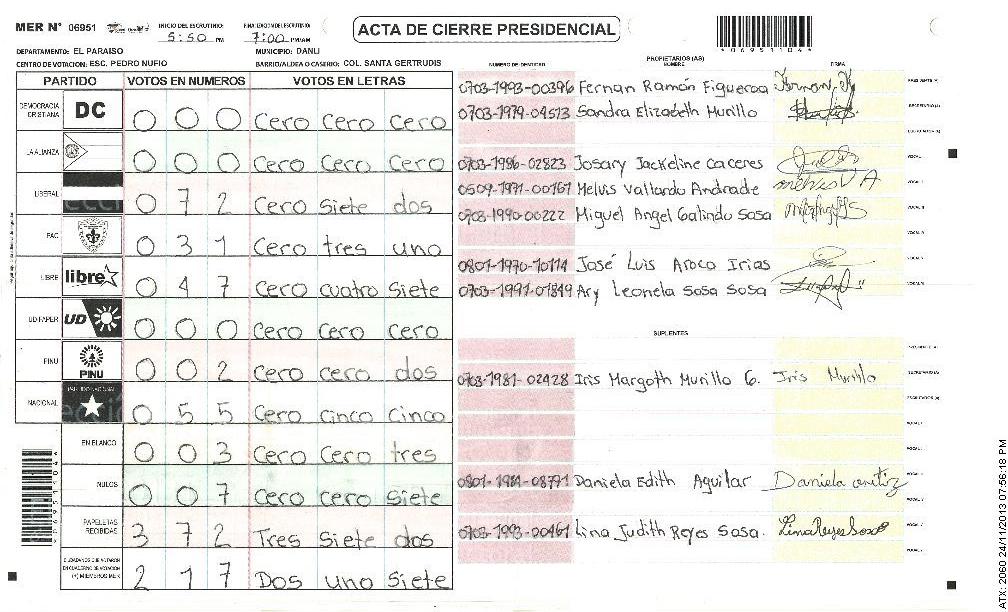 MER N° 06951
INICIO DEL ESCRUTINIO: 5:50 PM
FINALIZACION DEL ESCRUTINIO: 7:00 PM/AM
ACTA DE CIERRE PRESIDENCIAL
*06951104*
DEPARTAMENTO: EL PARAISO
MUNICIPIO: DANLI
CENTRO DE VOTACIÓN: ESC. PEDRO NUFIO
BARRIO/ALDEA O CASERIO: COL. SANTA GERTRUDIS
PARTIDO VOTOS EN NUMEROS VOTOS EN LETRAS
DEMOCRACIA CRISTIANA DC 0 0 0 Cero Cero Cero
LA ALIANZA 0 0 0 Cero Cero Cero
LIBERAL 0 7 2 Cero Siete dos
PAC 0 3 1 Cero tres uno
LIBRE libre 0 4 7 Cero cuatro Siete
UD FAPER UD 0 0 0 Cero Cero Cero
PINU PINU 0 0 2 Cero Cero dos
NACIONAL PARTIDO NACIONAL 0 5 5 Cero Cinco Cinco
EN BLANCO 0 0 3 Cero Cero tres
NULOS 0 0 7 Cero Cero Siete
PAPELETAS RECIBIDAS 3 7 2 Tres Siete dos
CIUDADANOS QUE VOTARON EN CUADERNO DE VOTACIÓN (+) MIEMBROS MER 2 1 7 Dos uno Siete
PROPIETARIOS (AS)
NUMERO DE IDENTIDAD NOMBRE FIRMA
0703-1993-00396 Fernan Ramón Figueroa
0703-1979-04513 Sandra Elizabeth Murillo
0703-1986-02823 Josary Jackeline Caceres
0509-1971-00161 Melvis Vallardo Andrade melvis V A
0703-1990-00222 Miguel Angel Galindo Sosa
0801-1970-10114 José Luis Aroca Irias
0703-1991-01849 Ary Leonela Sosa Sosa
SUPLENTES
0703-1981-02428 Iris Margoth Murillo G. Iris Murillo
0801-1981-08791 Daniela Edith Aguilar Daniela
0703-1993-00461 Lina Judith Reyes Sosa. Lina Reyes Sosa
*06951104*
ATX: 2060 24/11/2013 07:56:18 PM